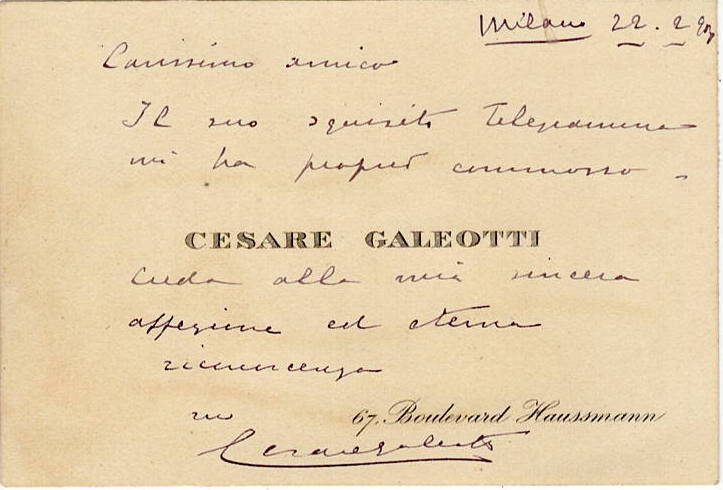 Milano 22. 2 907
Carissimo amico
Il suo squisito telegramma
mi ha proprio commosso -
CESARE GALEOTTI
Creda alla mia sincera
affezione ed eterna
riconoscenza
suo
67, Boulevard Haussmann
Cesare Galeotti